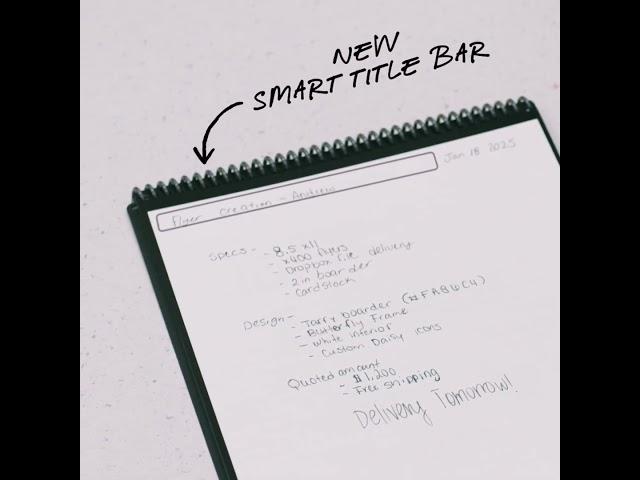 NEW
SMART TITLE BAR
Jan 18 2025
Flyer Creation - Andrew
Specs - - 8.5 x 11
- x400 flyers
- Dropbox file delivery
- 2in boarder
- Cardstock
Design - - Taffy boarder (#FA8WC4)
- Butterfly Frame
- White interior
- Custom Daisy icons
Quoted amount
- $1,200
- Free shipping
Delivery Tomorrow!